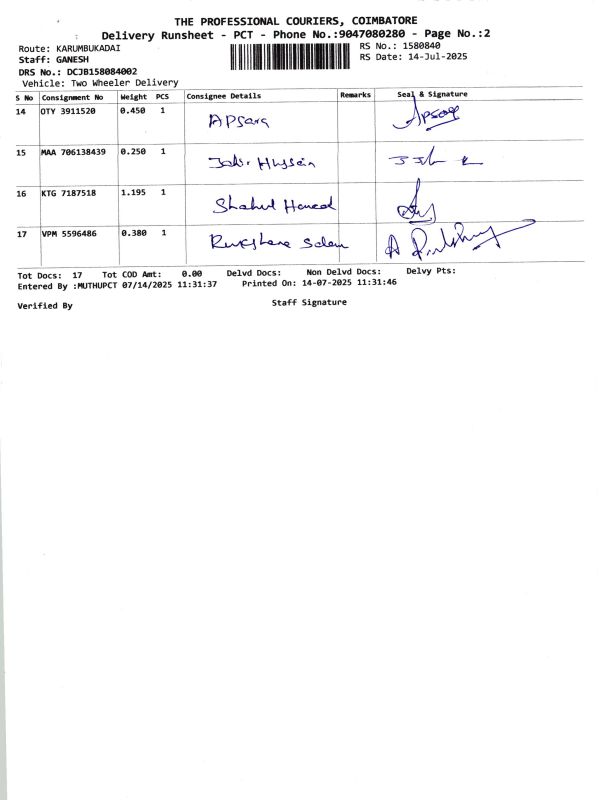 THE PROFESSIONAL COURIERS, COIMBATORE
Delivery Runsheet - PCT - Phone No.:9047080280 - Page No.:2
Route: KARUMBUKADAI
RS No.: 1580840
Staff: GANESH
RS Date: 14-Jul-2025
DRS No.: DCJB158084002
Vehicle: Two Wheeler Delivery
S No Consignment No Weight PCS Consignee Details Remarks Seal & Signature
14 OTY 3911520 0.450 1 APsara Apsara
15 MAA 706138439 0.250 1 Jakir Hussain
16 KTG 7187518 1.195 1 Shahul Hameed
17 VPM 5596486 0.380 1 Rukshana Salam
Tot Docs: 17 Tot COD Amt: 0.00 Delvd Docs: Non Delvd Docs: Delvy Pts:
Entered By :MUTHUPCT 07/14/2025 11:31:37 Printed On: 14-07-2025 11:31:46
Verified By Staff Signature